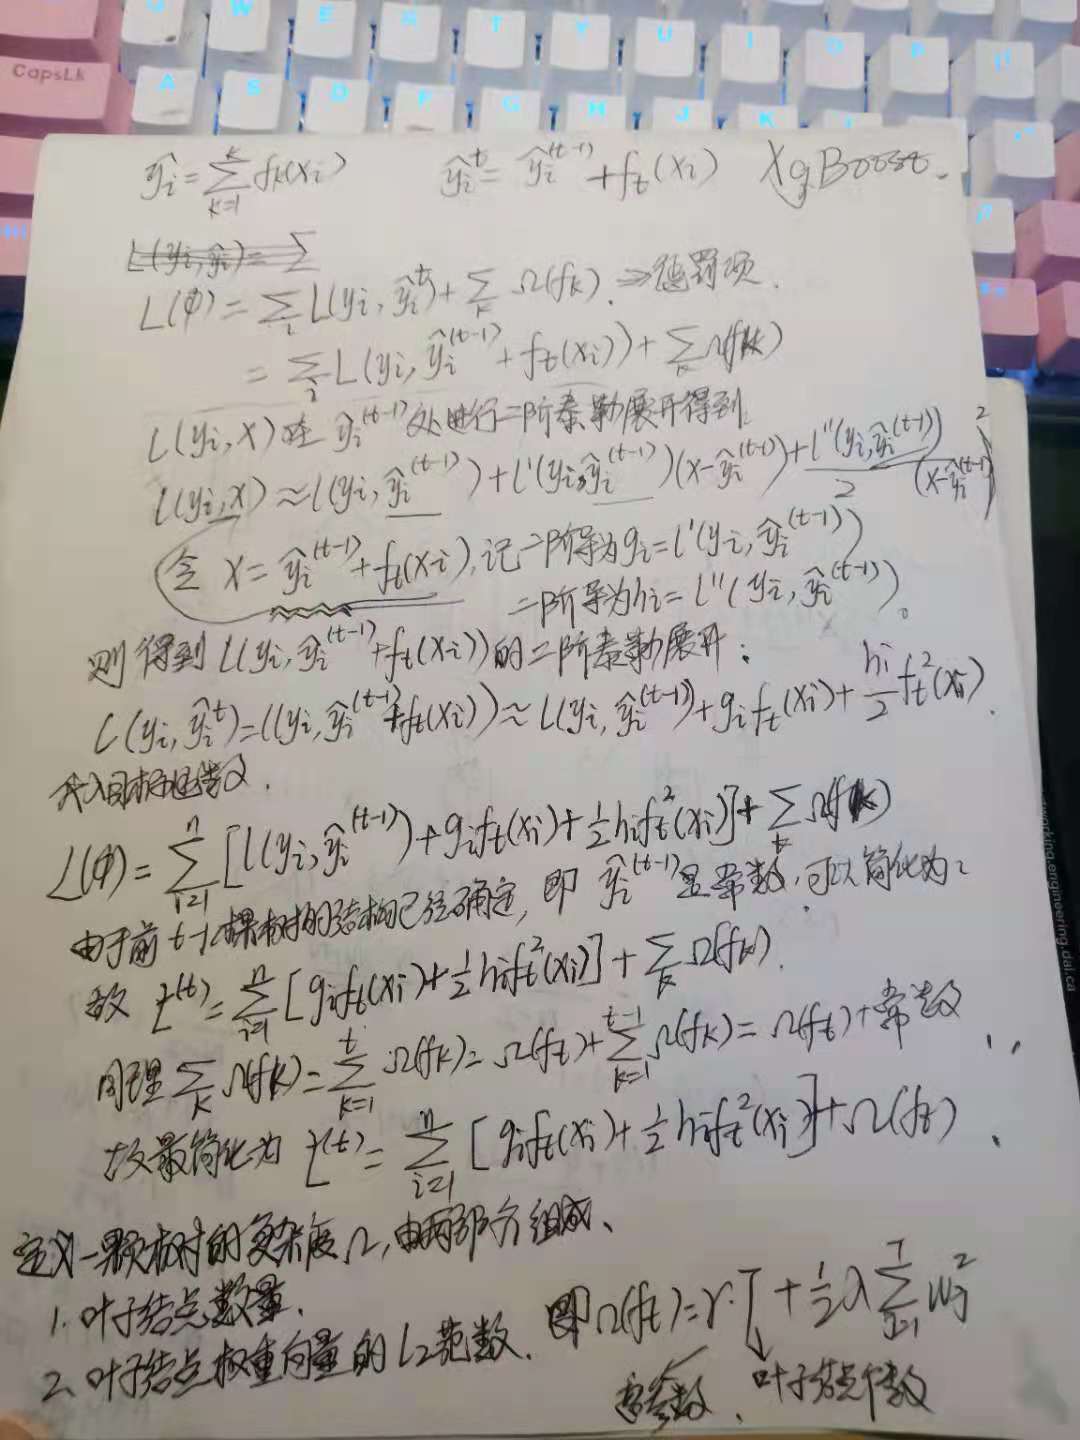 Q W E R T Y U I O P
CapsLk A S D F G H J K L
ŷi = Σ_{k=1}^{K} fk(xi)  ŷi^t = ŷi^(t-1) + ft(xi)  XgBoost.
L(yi, ŷi) = Σ
L(φ) = Σ_i L(yi, ŷi^t) + Σ_k Ω(fk). ⇒ 惩罚项.
= Σ_i L(yi, ŷi^(t-1) + ft(xi)) + Σ_k Ω(fk)
L(yi, x) 在 ŷi^(t-1) 处进行二阶泰勒展开得到
L(yi, x) ≈ l(yi, ŷi^(t-1)) + l'(yi, ŷi^(t-1))(x-ŷi^(t-1)) + l''(yi, ŷi^(t-1))/2 (x-ŷi^(t-1))^2
令 x = ŷi^(t-1) + ft(xi), 记一阶导为 gi = l'(yi, ŷi^(t-1))
二阶导为 hi = l''(yi, ŷi^(t-1)).
则得到 L(yi, ŷi^(t-1) + ft(xi)) 的二阶泰勒展开:
L(yi, ŷi^t) = L(yi, ŷi^(t-1) + ft(xi)) ≈ L(yi, ŷi^(t-1)) + gi ft(xi) + hi/2 ft^2(xi).
代入目标函数.
L(φ) = Σ_{i=1}^{n} [l(yi, ŷi^(t-1)) + gi ft(xi) + 1/2 hi ft^2(xi)] + Σ_k Ω(fk)
由于前 t-1 棵树的结构已经确定, 即 ŷi^(t-1) 是常数, 可以简化为:
故 L^(t) = Σ_{i=1}^{n} [gi ft(xi) + 1/2 hi ft^2(xi)] + Σ_k Ω(fk).
同理 Σ_k Ω(fk) = Σ_{k=1}^{t} Ω(fk) = Ω(ft) + Σ_{k=1}^{t-1} Ω(fk) = Ω(ft) + 常数
故最简化为 L^(t) = Σ_{i=1}^{n} [gi ft(xi) + 1/2 hi ft^2(xi)] + Ω(ft).
定义一颗树的复杂度 Ω, 由两部分组成.
1. 叶子结点数量.
2. 叶子结点权重向量的 L2范数. 即 Ω(ft) = γ·T + 1/2 λ Σ_{j=1}^{T} wj^2
叶子结点个数
working.engineering.dal.ca